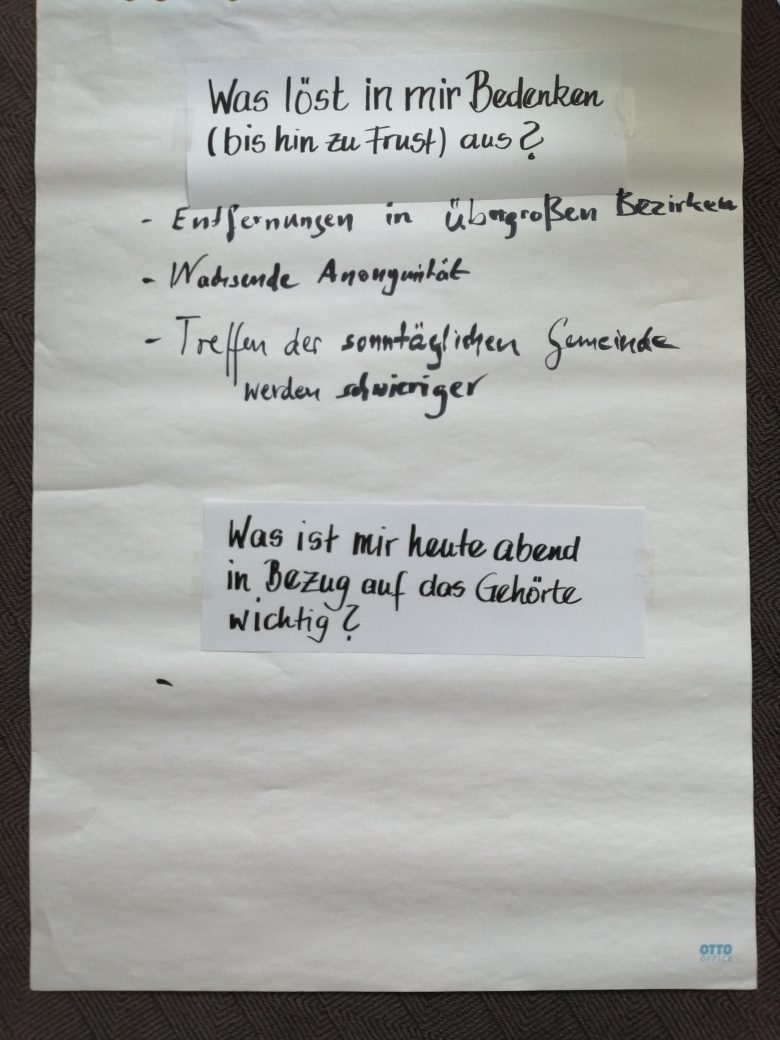 Was löst in mir Bedenken
(bis hin zu Frust) aus?
- Entfernungen in übergroßen Bezirken
- Wachsende Anonymität
- Treffen der sonntäglichen Gemeinde
werden schwieriger
Was ist mir heute abend
in Bezug auf das Gehörte
wichtig?
-
OTTO
OFFICE